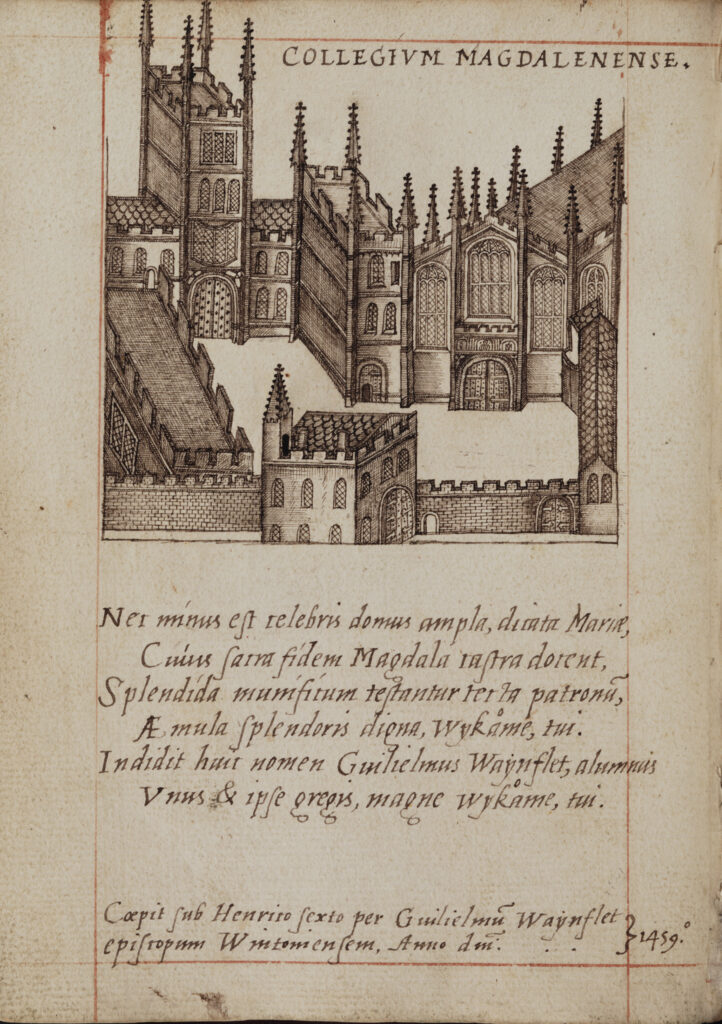 COLLEGIVM MAGDALENENSE.
Nec minus est celebris domus ampla, dicata Mariæ,
Cuius sacra fidem Magdala castra docent,
Splendida munificum testantur tecta patronū,
Æmula splendoris digna, Wykåme, tui.
Indidit huic nomen Guilielmus Waynflet, alumnus
Vnus & ipse gregis, magne Wykåme, tui.
Cœpit sub Henrico sexto per Guilielmū Waynflet
episcopum Wintoniensem, Anno dm̄. } 1459.